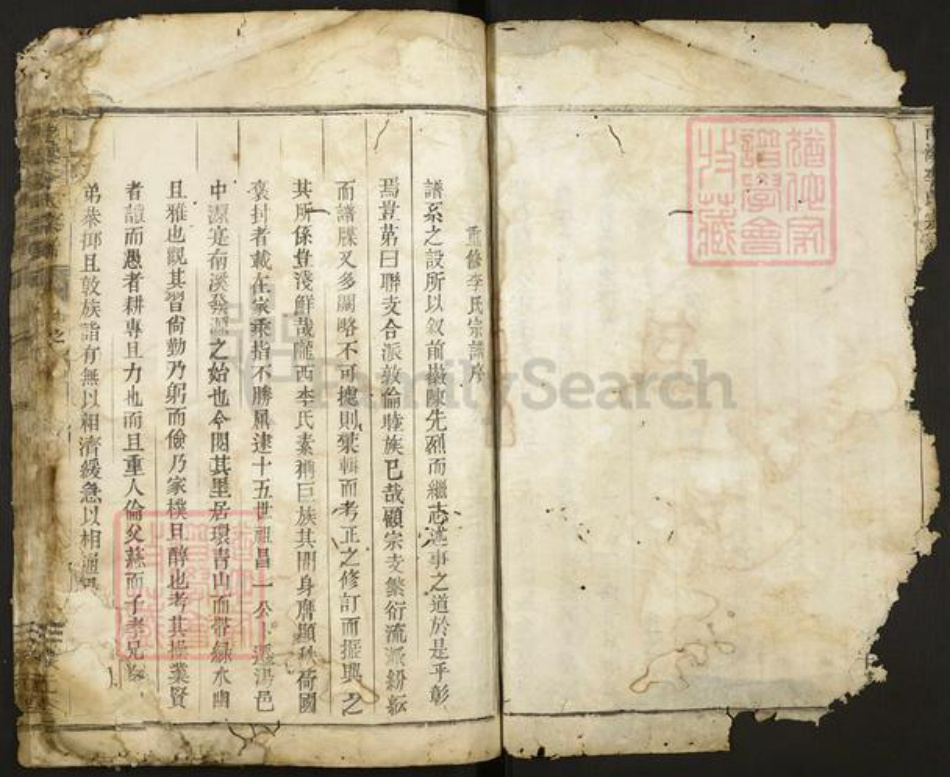 重修李氏宗譜序
譜系之設所以敘前徽陳先烈而繼志述事之道於是乎彰
焉豈苐曰聯支合派敦倫睦族已哉顧宗支繁衍流派紛紜
而譜牒又多闕略不可據則裒輯而考正之修訂而振興之
其所係豈淺鮮哉隴西李氏素稱巨族其間身膺顯秩荷國
褒封者載在家乘指不勝屈逮十五世祖昌一公遷湯邑
中源寔南溪發源之始也今閱其里居環青山而帶綠水幽
且雅也觀其習尙勤乃躬而儉乃家樸且醇也考其操業賢
者讀而愚者耕專且力也而且重人倫父慈而子孝兄
弟恭郷且敦族誼有無以相濟緩急以相通
猶他家
譜學會
收藏
FamilySearch